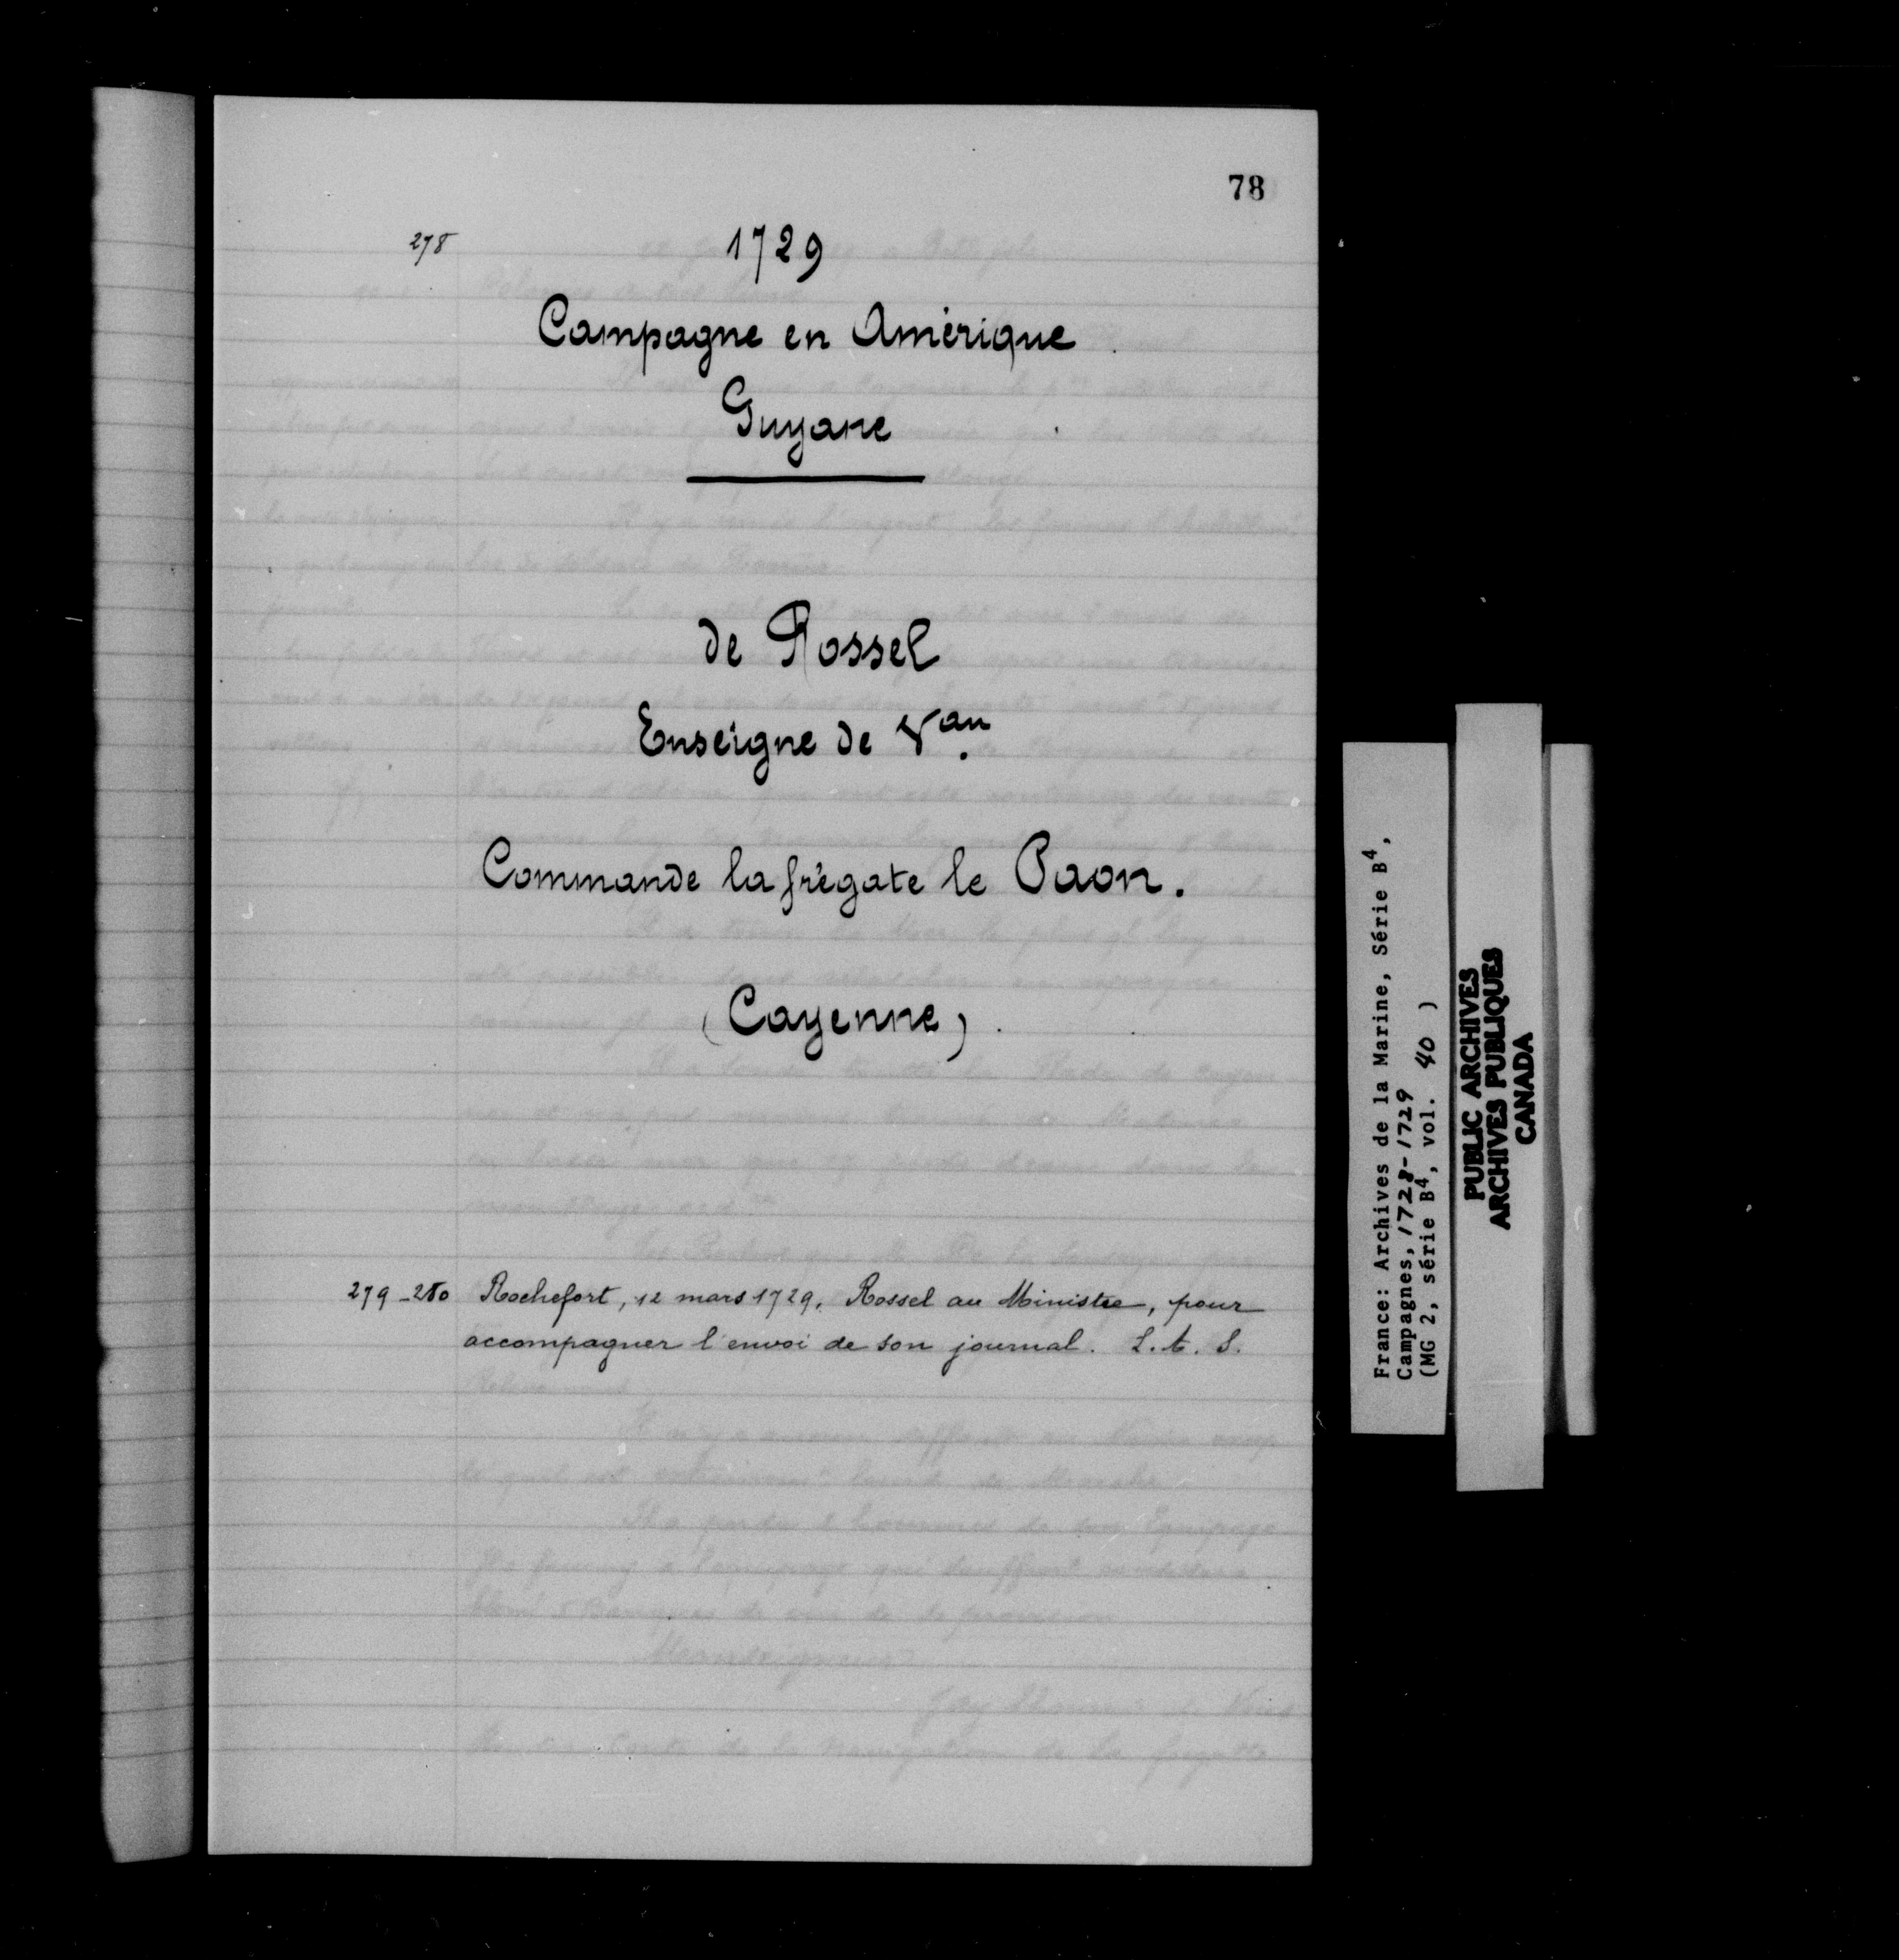 78
278
1729
Campagne en Amérique
Guyane
de Rossel
Enseigne de Vau.
Commande la frégate le Paon.
(Cayenne).
279-280 Rochefort, 12 mars 1729. Rossel au Ministre, pour
accompagner l'envoi de son journal. L. A. S.
France: Archives de la Marine, Série B4,
Campagnes, 1728-1729
(MG 2, série B4, vol. 40 )
PUBLIC ARCHIVES
ARCHIVES PUBLIQUES
CANADA